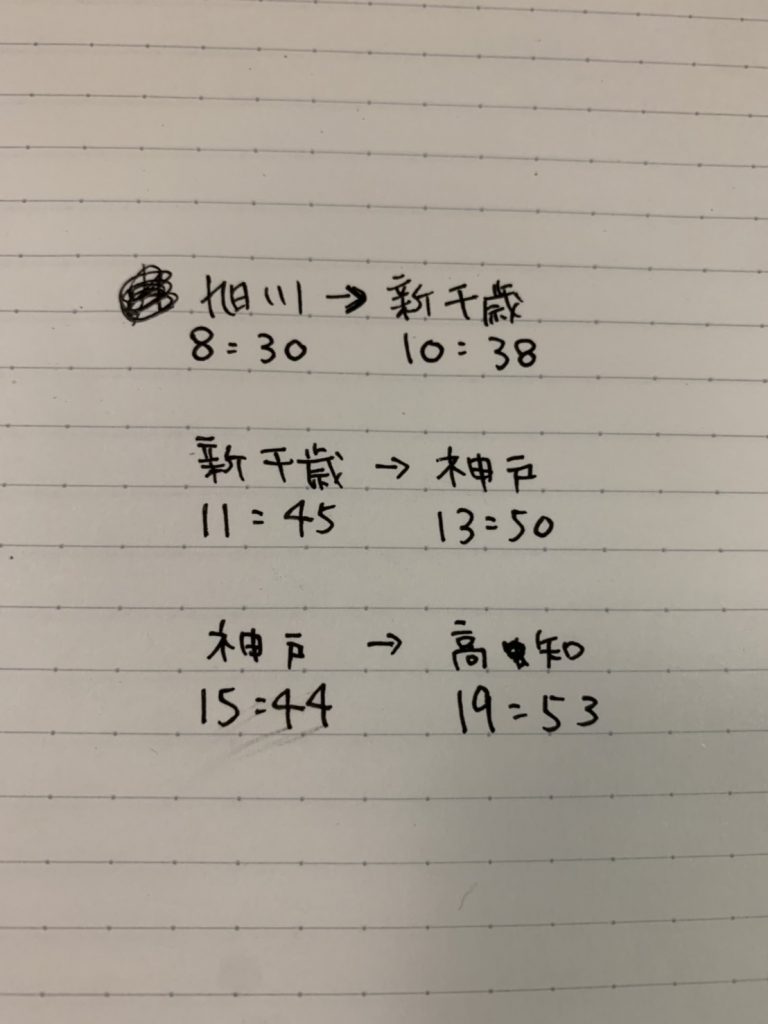 旭川→新千歳
8:30 10:38
新千歳→神戸
11:45 13:50
神戸→高知
15:44 19:53